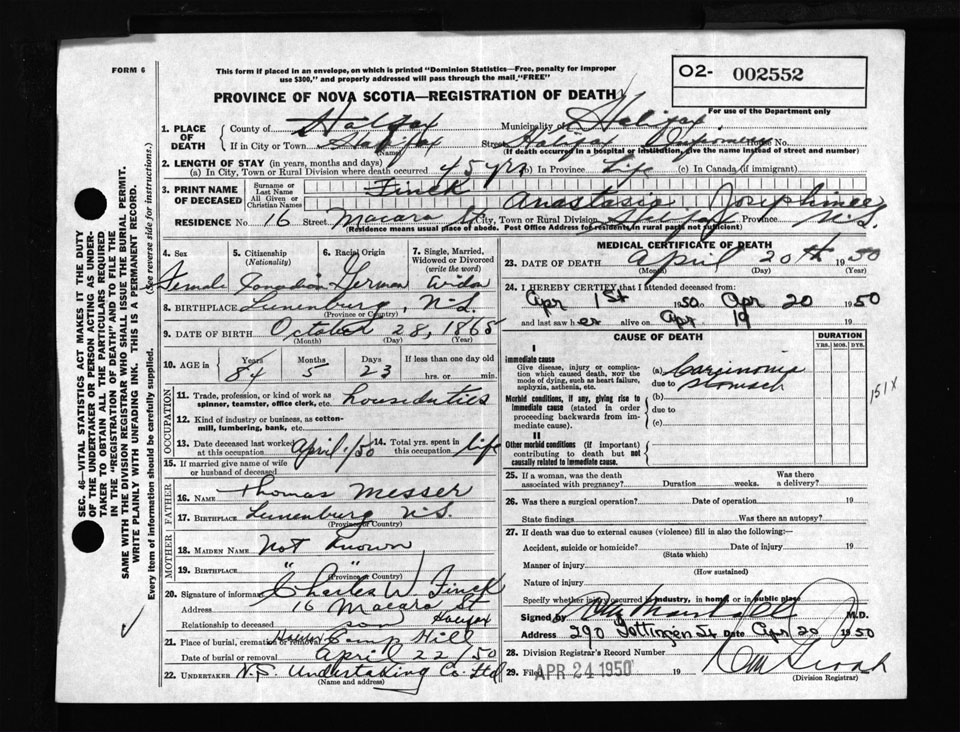 FORM 6
This form if placed in an envelope, on which is printed "Dominion Statistics—Free, penalty for improper
use $300," and properly addressed will pass through the mail "FREE"
O2- 002552
For use of the Department only
PROVINCE OF NOVA SCOTIA—REGISTRATION OF DEATH
1. PLACE OF DEATH
County of Halifax Municipality of Halifax
If in City or Town Halifax (Name) Street Halifax Infirmary House No.
(If death occurred in a hospital or institution, give the name instead of street and number)
2. LENGTH OF STAY (in years, months and days)
(a) In City, Town or Rural Division where death occurred 45 yrs (b) In Province Life (c) In Canada (if immigrant)
3. PRINT NAME OF DECEASED
Surname or Last Name Finck
All Given or Christian Names Anastasia Josephine
RESIDENCE No. 16 Street Macara St City, Town or Rural Division Halifax Province N.S.
(Residence means usual place of abode. Post Office Address for residents in rural parts not sufficient)
4. Sex Female
5. Citizenship (Nationality) Canadian
6. Racial Origin German
7. Single, Married, Widowed or Divorced (write the word) Widow
8. BIRTHPLACE Lunenburg, N.S.
(Province or Country)
9. DATE OF BIRTH October 28, 1865
(Month) (Day) (Year)
10. AGE in Years 84 Months 5 Days 23 If less than one day old hrs. or min.
OCCUPATION
11. Trade, profession, or kind of work as spinner, teamster, office clerk, etc. houseduties
12. Kind of industry or business, as cotton-mill, lumbering, bank, etc.
13. Date deceased last worked at this occupation April/50
14. Total yrs. spent in this occupation life
15. If married give name of wife or husband of deceased
FATHER
16. NAME Thomas Messer
17. BIRTHPLACE Lunenburg N.S.
(Province or Country)
MOTHER
18. MAIDEN NAME Not known
19. BIRTHPLACE " "
(Province or Country)
20. Signature of informant Charles W. Finck
Address 16 Macara St Halifax
Relationship to deceased son
21. Place of burial, cremation or removal Halifax Camp Hill
Date of burial or removal April 22/50
22. UNDERTAKER N.S. Undertaking Co. Ltd
(Name and address)
MEDICAL CERTIFICATE OF DEATH
23. DATE OF DEATH April 20th 1950
(Month) (Day) (Year)
24. I HEREBY CERTIFY that I attended deceased from:
Apr 1st 1950 Apr 20 1950
and last saw her alive on Apr 19 19
CAUSE OF DEATH
DURATION
YRS. MOS. DYS.
I
Immediate cause
Give disease, injury or complication which caused death, not the mode of dying, such as heart failure, asphyxia, asthenia, etc.
(a) Carcinonia
due to stomach
151X
Morbid conditions, if any, giving rise to immediate cause (stated in order proceeding backwards from immediate cause).
(b)
due to
(c)
II
Other morbid conditions (if important) contributing to death but not causally related to immediate cause.
25. If a woman, was the death associated with pregnancy? Duration weeks. Was there a delivery?
26. Was there a surgical operation? Date of operation 19
State findings Was there an autopsy?
27. If death was due to external causes (violence) fill in also the following:—
Accident, suicide or homicide? Date of injury 19
(State which)
Manner of injury
(How sustained)
Nature of injury
Specify whether injury occurred in industry, in home, or in public place
Signed by M.D.
Address 290 Gottingen St Date Apr 20 1950
28. Division Registrar's Record Number
29. Filed APR 24 1950 19
(Division Registrar)
SEC. 46—VITAL STATISTICS ACT MAKES IT THE DUTY
OF THE UNDERTAKER OR PERSON ACTING AS UNDER-
TAKER TO OBTAIN ALL THE PARTICULARS REQUIRED
IN THE "REGISTRATION OF DEATH" AND TO FILE THE
SAME WITH THE DIVISION REGISTRAR WHO SHALL ISSUE THE BURIAL PERMIT.
WRITE PLAINLY WITH UNFADING INK. THIS IS A PERMANENT RECORD.
Every item of information should be carefully supplied. (See reverse side for instructions.)